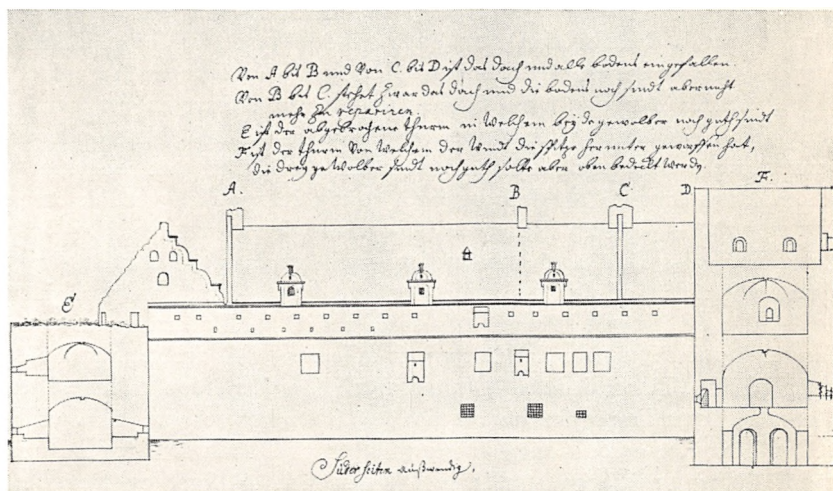 Von A bis B und Von C. bis D ist das dach und alle bodens eingefallen.
Von B bes C. stehet zwar das dach und die bodens noch sindt aber nicht
mehr zu repariren.
E ist der abgebrochene thurm in Welchem beijde gewolber noch guth sindt
F ist der thurm Von Welchem der Windt die spitze herunter geworffen hat,
die dreij gewolber sindt noch guth solte aber oben bedeckt werden.
A. B C. D F.
E
Süder seiten außwendig.